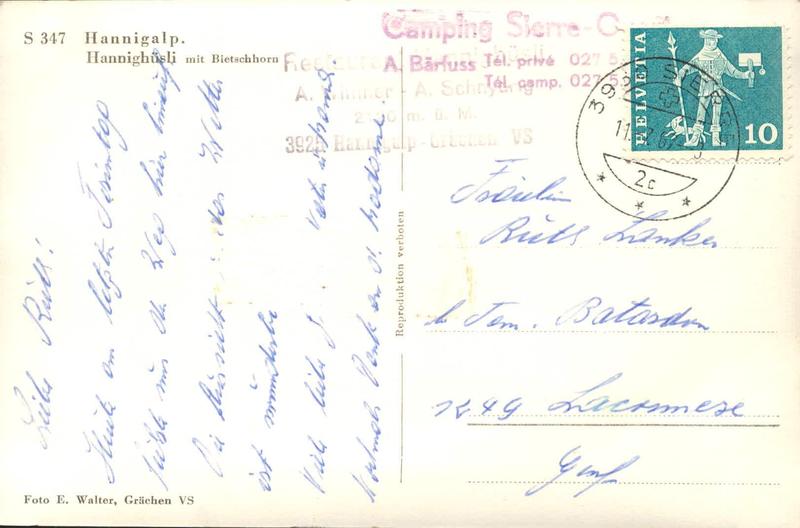 S 347 Hannigalp.
Hannighüsli mit Bietschhorn
Camping Sierre-
A. Bärfuss Tél. privé 027 5
Tél. camp. 027 5
A. Schnydrig
m. ü. M.
3925 Hannigalp-Grächen VS
HELVETIA
10
2c
Liebe Ruth!
Heute am letzten Ferientag
führte uns der Weg hier hinauf
Die Aussicht das Wetter
ist wunderbar
Viele liebe
Nochmals Dank
Reproduktion verboten
Fräulein
Ruth Lanker
b. Fam. Batardon
1249 Laconnese
Genf
Foto E. Walter, Grächen VS